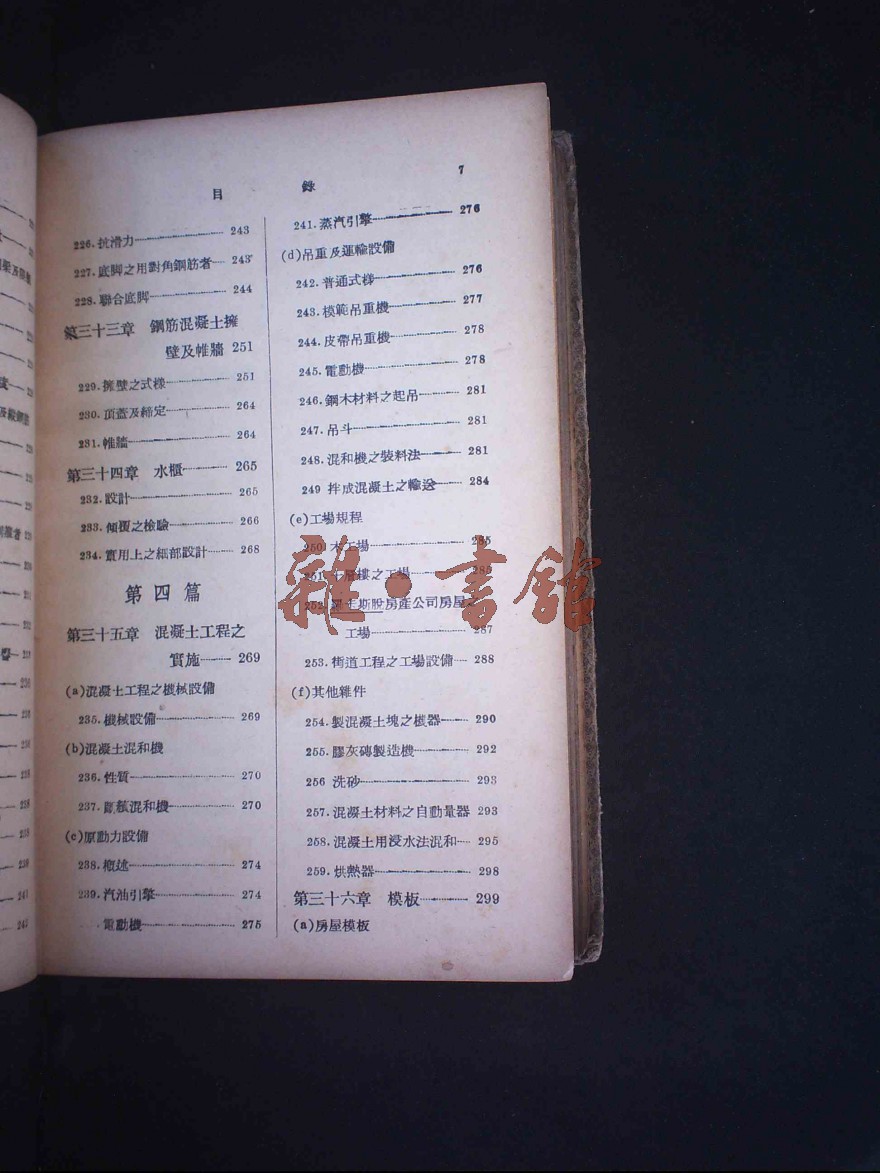 7
目 錄
226.抗滑力 243
227.底脚之用對角鋼筋者 243
228.聯合底脚 244
第三十三章 鋼筋混凝土擁
壁及帷牆 251
229.擁壁之式樣 251
230.頂蓋及締定 264
231.帷牆 264
第三十四章 水櫃 265
232.設計 265
233.傾覆之檢驗 266
234.實用上之細部設計 268
第四篇
第三十五章 混凝土工程之
實施 269
(a)混凝土工程之機械設備
235.機械設備 269
(b)混凝土混和機
236.性質 270
237. 混和機 270
(c)原動力設備
238.概述 274
239.汽油引擎 274
電動機 275
241.蒸汽引擎 276
(d)吊重及運輸設備
242.普通式樣 276
243.模範吊重機 277
244.皮帶吊重機 278
245.電動機 278
246.鋼木材料之起吊 281
247.吊斗 281
248.混和機之裝料法 281
249 拌成混凝土之輸送 284
(e)工場規程
250.木工場 285
251. 層樓之工場 285
252. 斯脫房產公司房屋之
工場 287
253.街道工程之工場設備 288
(f)其他雜件
254.製混凝土塊之機器 290
255.膠灰磚製造機 292
256 洗砂 293
257.混凝土材料之自動量器 293
258.混凝土用浸水法混和 295
259.烘熱器 298
第三十六章 模板 299
(a)房屋模板
雜·書館